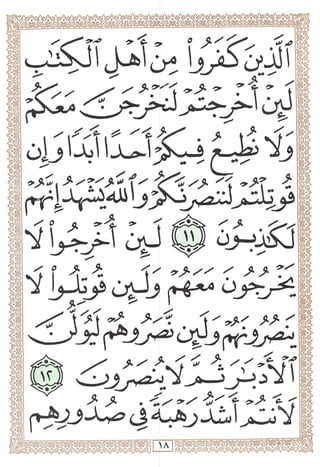 ٱلَّذِينَ كَفَرُوا۟ مِنْ أَهْلِ ٱلْكِتَٰبِ
لَئِنْ أُخْرِجْتُمْ لَنَخْرُجَنَّ مَعَكُمْ
وَلَا نُطِيعُ فِيكُمْ أَحَدًا أَبَدًا وَإِن
قُوتِلْتُمْ لَنَنصُرَنَّكُمْ وَٱللَّهُ يَشْهَدُ إِنَّهُمْ
لَكَٰذِبُونَ ١١ لَئِنْ أُخْرِجُوا۟ لَا
يَخْرُجُونَ مَعَهُمْ وَلَئِن قُوتِلُوا۟ لَا
يَنصُرُونَهُمْ وَلَئِن نَّصَرُوهُمْ لَيُوَلُّنَّ
ٱلْأَدْبَٰرَ ثُمَّ لَا يُنصَرُونَ ١٢
لَأَنتُمْ أَشَدُّ رَهْبَةً فِى صُدُورِهِم
١٨